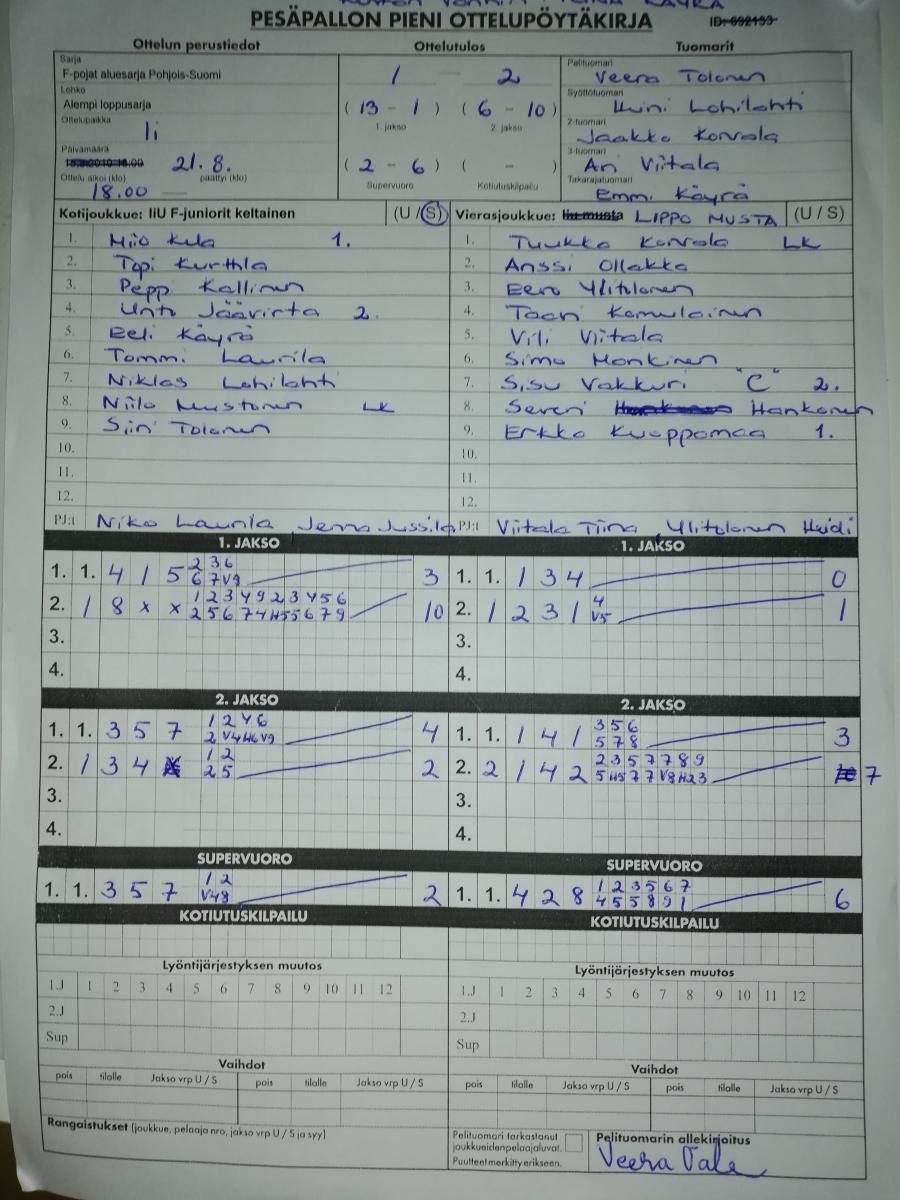 PESÄPALLON PIENI OTTELUPÖYTÄKIRJA ID: 692153
Ottelun perustiedot Ottelutulos Tuomarit
Sarja
F-pojat aluesarja Pohjois-Suomi
Lohko
Alempi loppusarja
Ottelupaikka
Ii
Päivämäärä
21.8.
Ottelu alkoi (klo) päättyi (klo)
18.00 —
1 — 2
( 13 - 1 ) ( 6 - 10 )
1. jakso 2. jakso
( 2 - 6 ) ( - )
Supervuoro Kotiutuskilpailu
Pelituomari
Veera Tolonen
Syöttötuomari
Lohilahti
2-tuomari
Jaakko Korvala
3-tuomari
Ari Viitala
Takarajatuomari
Emmi Käyrä
Kotijoukkue: IiU F-juniorit keltainen (U / S)
1. Miio Kela 1.
2. Topi Kurttila
3. Peppi Kallinen
4. Unto Jäävirta 2.
5. Eeli Käyrä
6. Tommi Laurila
7. Niklas Lohilahti
8. Niilo Mustonen LK
9. Siiri Tolonen
10.
11.
12.
PJ:t Niko Laurila Jenna Jussila
Vierasjoukkue: Iiu musta LIPPO MUSTA (U / S)
1. Tuukka Korvala LK
2. Anssi Ollakka
3. Eero Ylitolonen
4. Taari Komulainen
5. Vili Viitala
6. Simo Honkinen
7. Sisu Vakkuri "C" 2.
8. Severi Hankonen
9. Erkko Kuoppamaa 1.
10.
11.
12.
PJ:t Viitala Tiina Ylitolonen Heidi
1. JAKSO
1. 1. 4 1 5 2 3 6 3
6 7 V9
2. 1 8 x x 1 2 3 4 9 2 3 4 5 6 10
2 5 6 7 4 H5 5 6 7 9
3.
4.
1. JAKSO
1. 1. 1 3 4 0
2. 1 2 3 1 4 1
V5
3.
4.
2. JAKSO
1. 1. 3 5 7 1 2 4 6 4
2 V4 H6 V9
2. 1 3 4 1 2 2
2 5
3.
4.
2. JAKSO
1. 1. 1 4 1 3 5 6 3
5 7 8
2. 2 1 4 2 2 3 5 7 7 8 9 7
5 H5 7 7 V8 H2 3
3.
4.
SUPERVUORO
1. 1. 3 5 7 1 2 2
V4 8
SUPERVUORO
1. 1. 4 2 8 1 2 3 5 6 7 6
4 5 5 8 9 1
KOTIUTUSKILPAILU KOTIUTUSKILPAILU
Lyöntijärjestyksen muutos Lyöntijärjestyksen muutos
1.J 1 2 3 4 5 6 7 8 9 10 11 12 1.J 1 2 3 4 5 6 7 8 9 10 11 12
2.J 2.J
Sup Sup
Vaihdot Vaihdot
pois tilalle Jakso vrp U / S pois tilalle Jakso vrp U / S pois tilalle Jakso vrp U / S pois tilalle Jakso vrp U / S
Rangaistukset (joukkue, pelaaja nro, jakso vrp U / S ja syy)
Pelituomari tarkastanut
joukkueidenpelaajaluvat.
Puutteet merkitty erikseen.
Pelituomarin allekirjoitus
Veera Tale